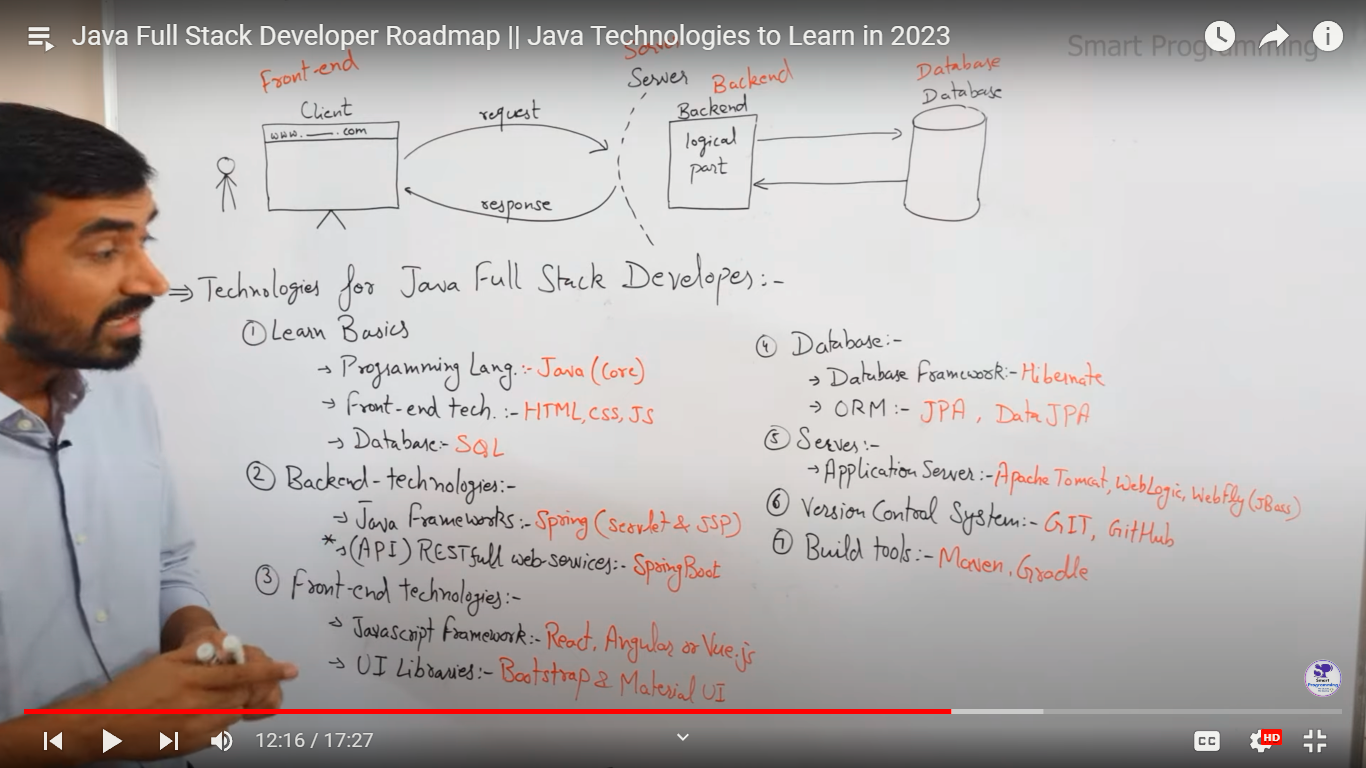 Java Full Stack Developer Roadmap || Java Technologies to Learn in 2023
Smart Programming
Front-end
Server
Backend
Database
Client
request
Server
Backend
Database
www.___.com
logical
part
response
⇒ Technologies for Java Full Stack Developer:-
① Learn Basics
→ Programming Lang.:- Java (Core)
→ Front-end tech.:- HTML, CSS, JS
→ Database:- SQL
② Backend-technologies:-
→ Java Frameworks:- Spring (Servlet & JSP)
*→ (API) RESTfull web-services:- SpringBoot
③ Front-end technologies:-
→ Javascript Framework:- React, Angular or Vue.js
→ UI Libraries:- Bootstrap & Material UI
④ Database:-
→ Database Framework:- Hibernate
→ ORM:- JPA, Data JPA
⑤ Server:-
→ Application Server:- Apache Tomcat, WebLogic, WebFly (JBoss)
⑥ Version Control System:- GIT, GitHub
⑦ Build tools:- Maven, Gradle
Smart
Programming
12:16 / 17:27
CC
HD